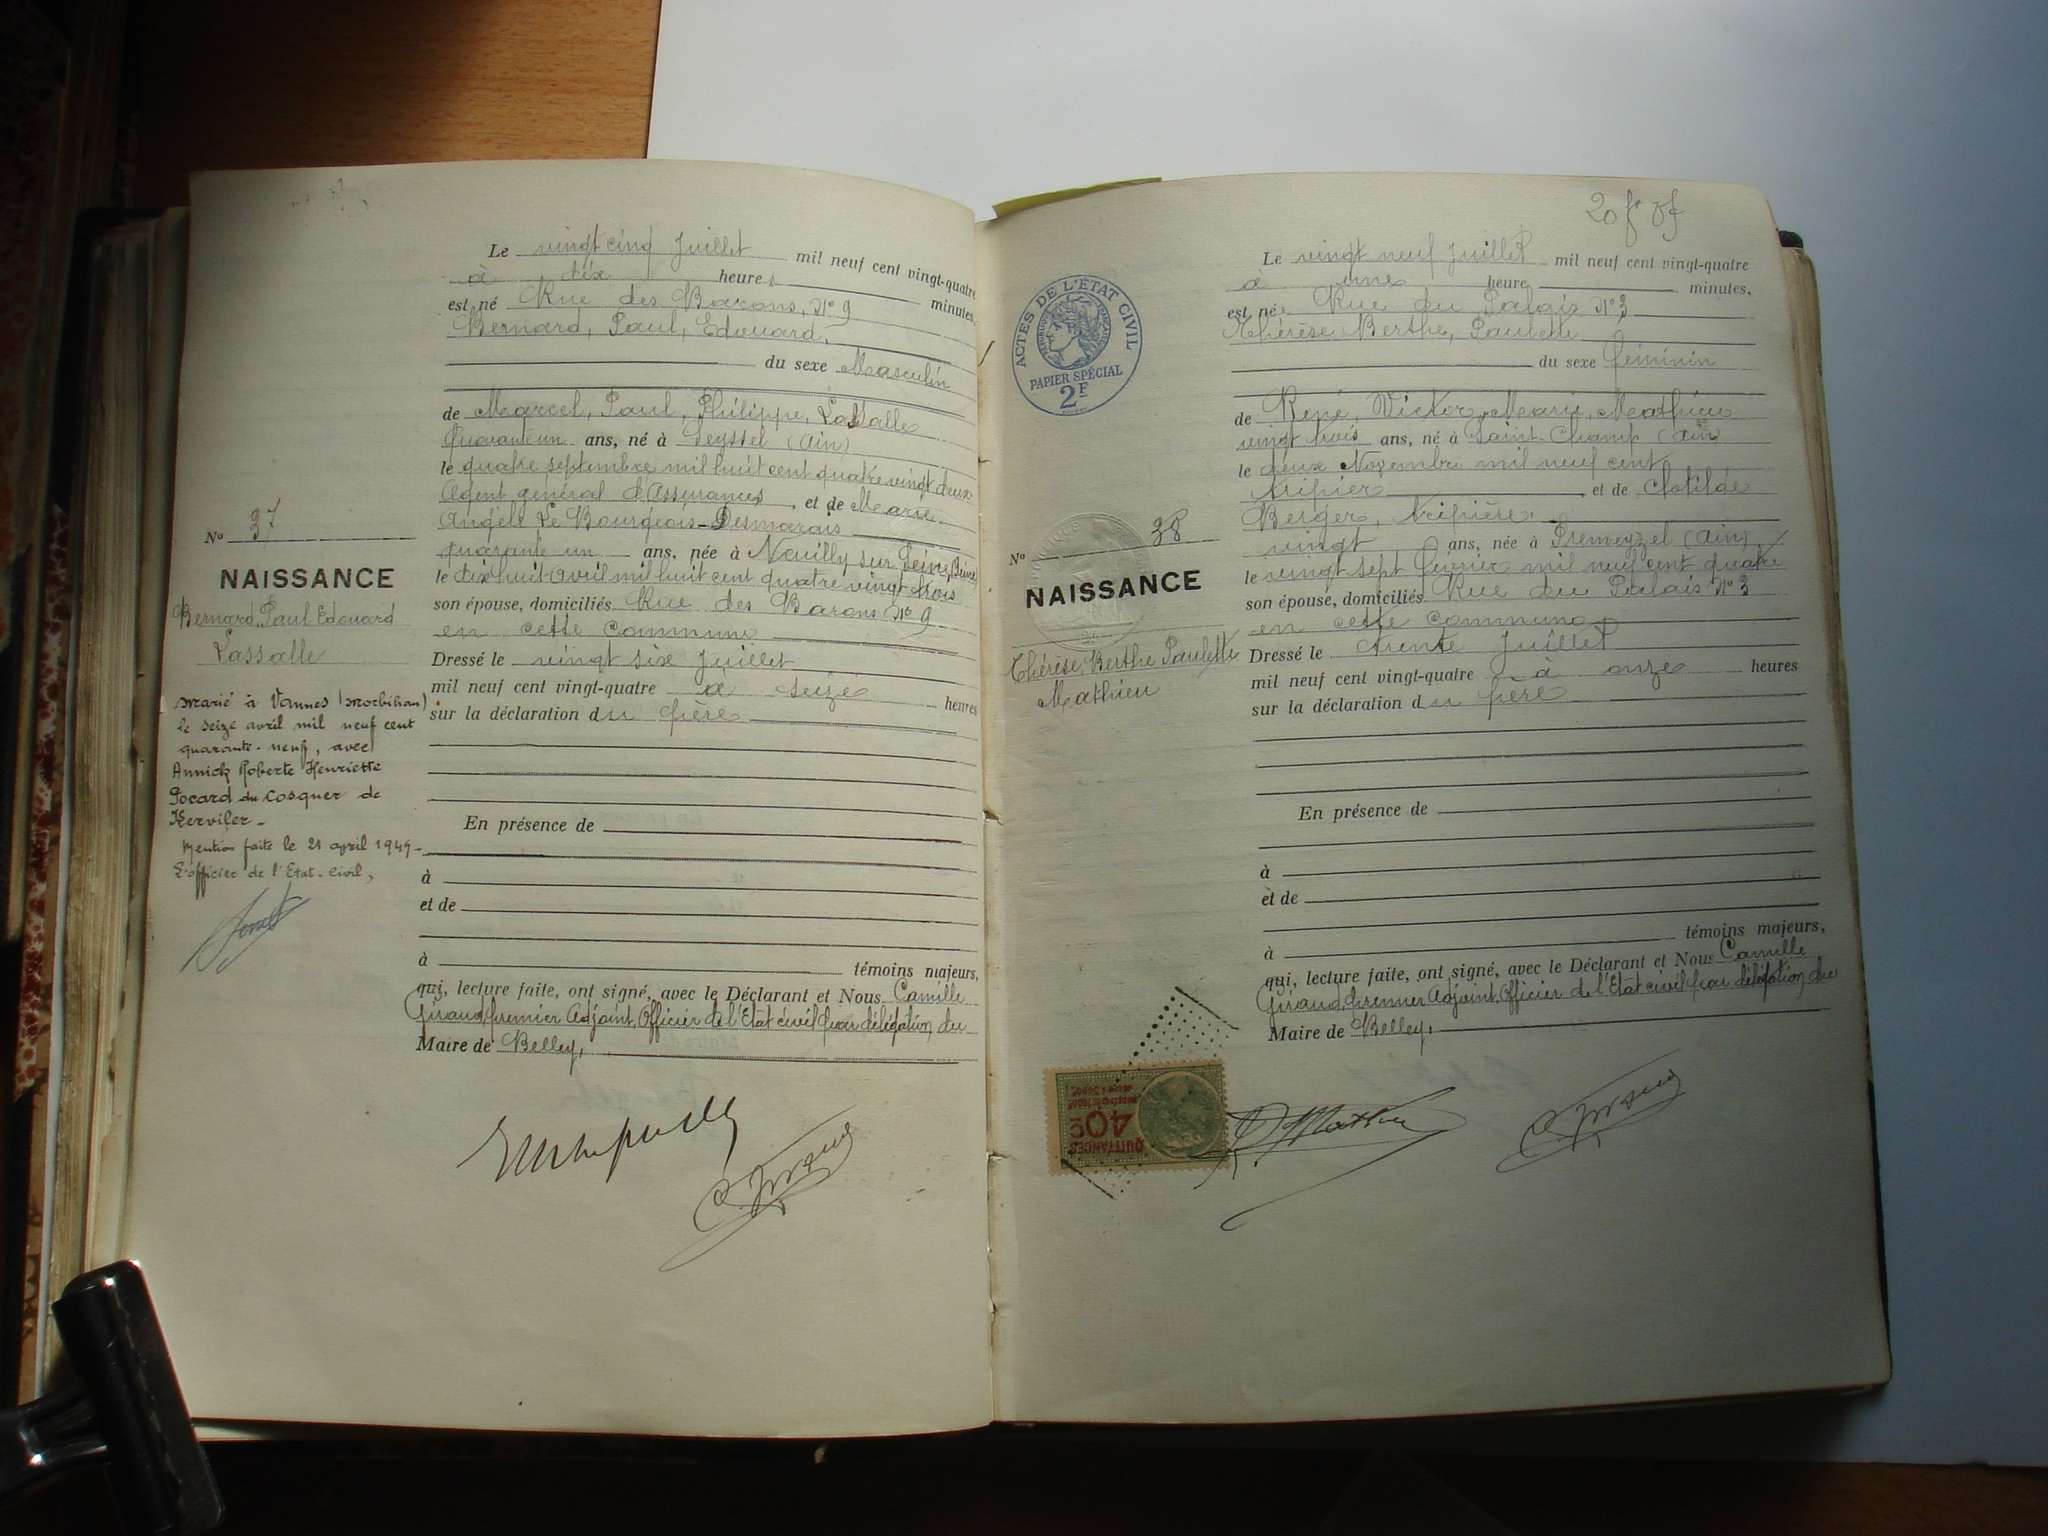 Le vingt cinq Juillet mil neuf cent vingt-quatre
à dix heures minutes,
est né Rue des Barons, N° 9
Bernard, Paul, Edouard,
du sexe Masculin
de Marcel, Paul, Philippe, Lassalle
Quarante un ans, né à Seyssel (Ain)
le quatre septembre mil huit cent quatre vingt deux
Agent général d'Assurances, et de Marie
Angèle Le Bourgeois-Desmarais
quarante un ans, née à Neuilly sur Seine (Seine)
le dix huit avril mil huit cent quatre vingt trois
son épouse, domiciliés Rue des Barons N° 9
en cette commune
Dressé le vingt six Juillet
mil neuf cent vingt-quatre à seize heures
sur la déclaration du père
En présence de
à
et de
à témoins majeurs,
qui, lecture faite, ont signé, avec le Déclarant et Nous Camille
Giraud, premier Adjoint, Officier de l'Etat civil par délégation du
Maire de Belley,
N° 37
NAISSANCE
Bernard, Paul Edouard
Lassalle
Marié à Vannes (Morbihan)
le seize avril mil neuf cent
quarante-neuf, avec
Annick Roberte Henriette
Pocard du Cosquer de
Kerviler-
Mention faite le 21 april 1949-
L'officier de l'Etat-Civil,
20
ACTES DE L'ÉTAT CIVIL
PAPIER SPÉCIAL
2F
Le vingt neuf Juillet mil neuf cent vingt-quatre
à une heure minutes,
est née Rue du Palais N° 3
Thérèse Berthe, Paulette
du sexe féminin
de René, Victor, Marie, Mathieu
vingt trois ans, né à Saint-Champ (Ain)
le deux Novembre mil neuf cent
tripier et de Clotilde
Berger, tripière
vingt ans, née à Premeyzel (Ain)
le vingt sept février mil neuf cent quatre
son épouse, domiciliés Rue du Palais N° 3
en cette commune
Dressé le trente Juillet
mil neuf cent vingt-quatre à onze heures
sur la déclaration du père
En présence de
à
et de
à témoins majeurs,
qui, lecture faite, ont signé, avec le Déclarant et Nous Camille
Giraud, premier Adjoint, Officier de l'Etat civil par délégation du
Maire de Belley,
N° 38
NAISSANCE
Thérèse Berthe Paulette
Mathieu
QUITTANCES
40c
R. Mathieu
C. Giraud